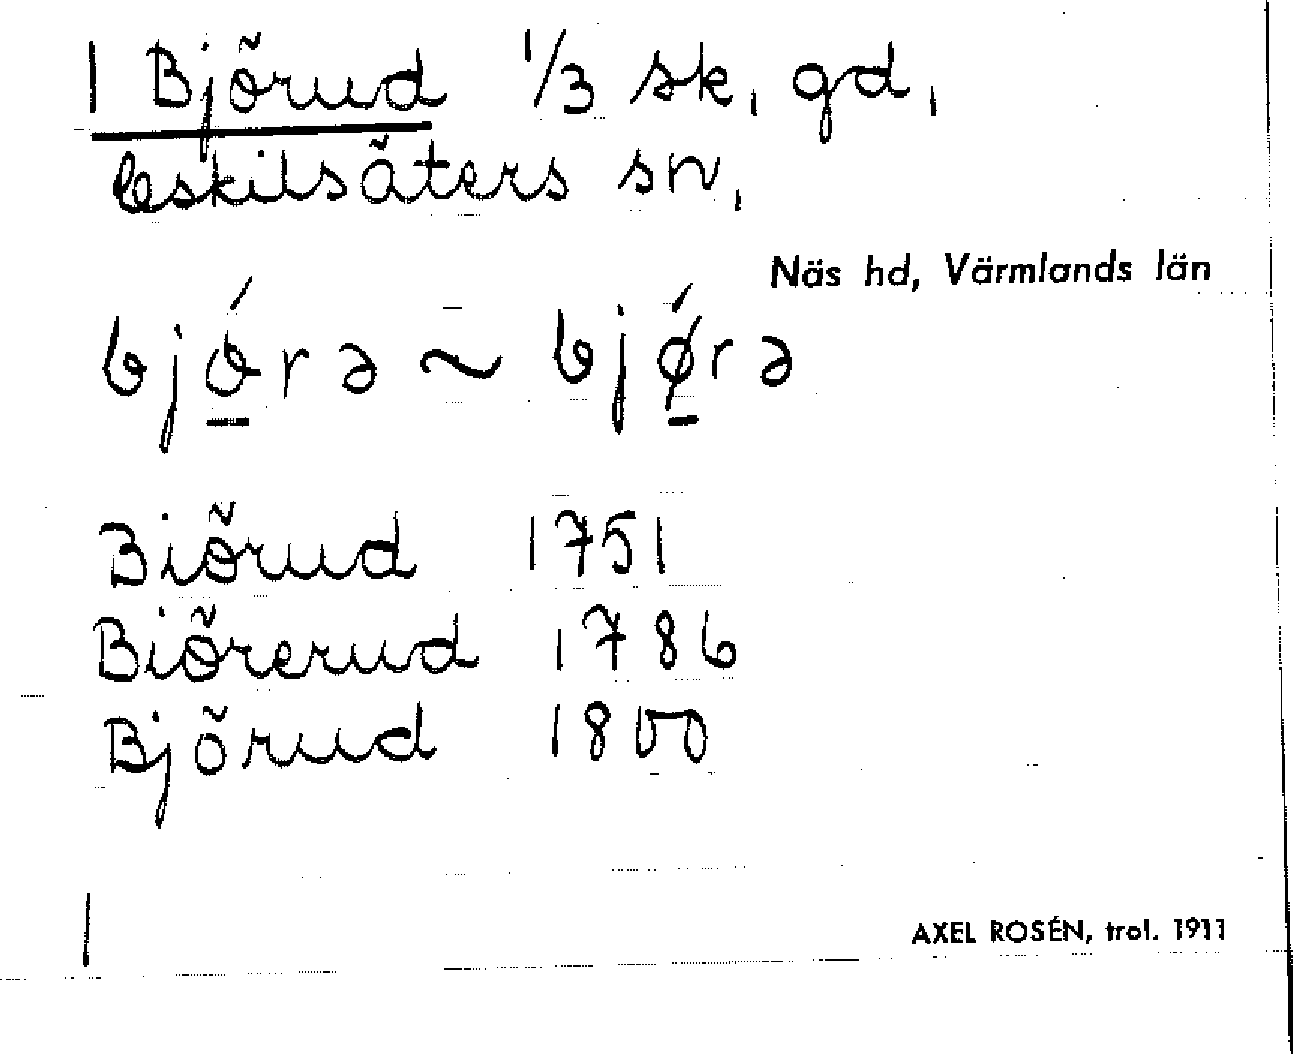 1 Björud 1/3 sk, gd,
Eskilsäters sn,
Näs hd, Värmlands län
bjǿ̱rə ~ bjǿ̱rə
Biörud 1751
Biörerud 1786
Björud 1800
AXEL ROSÉN, trol. 1911